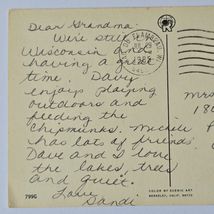 Dear Grandma
We're still
Wisconsin and
having a great
time. Davy
enjoys playing
outdoors and
feeding the
Chipmunks. Michele
has lots of friends
Dave and I love
the lakes, trees
and quiet.
Love
Sandi
Mrs
COLOR BY SCENIC ART
BERKELEY, CALIF. 94710